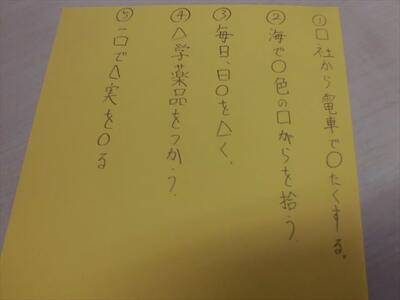 ①□社から電車で○たくする。
②海で○色の□がらを拾う。
③毎日、日○を△く、
④△学薬品をつかう。
⑤一口で△実を○る